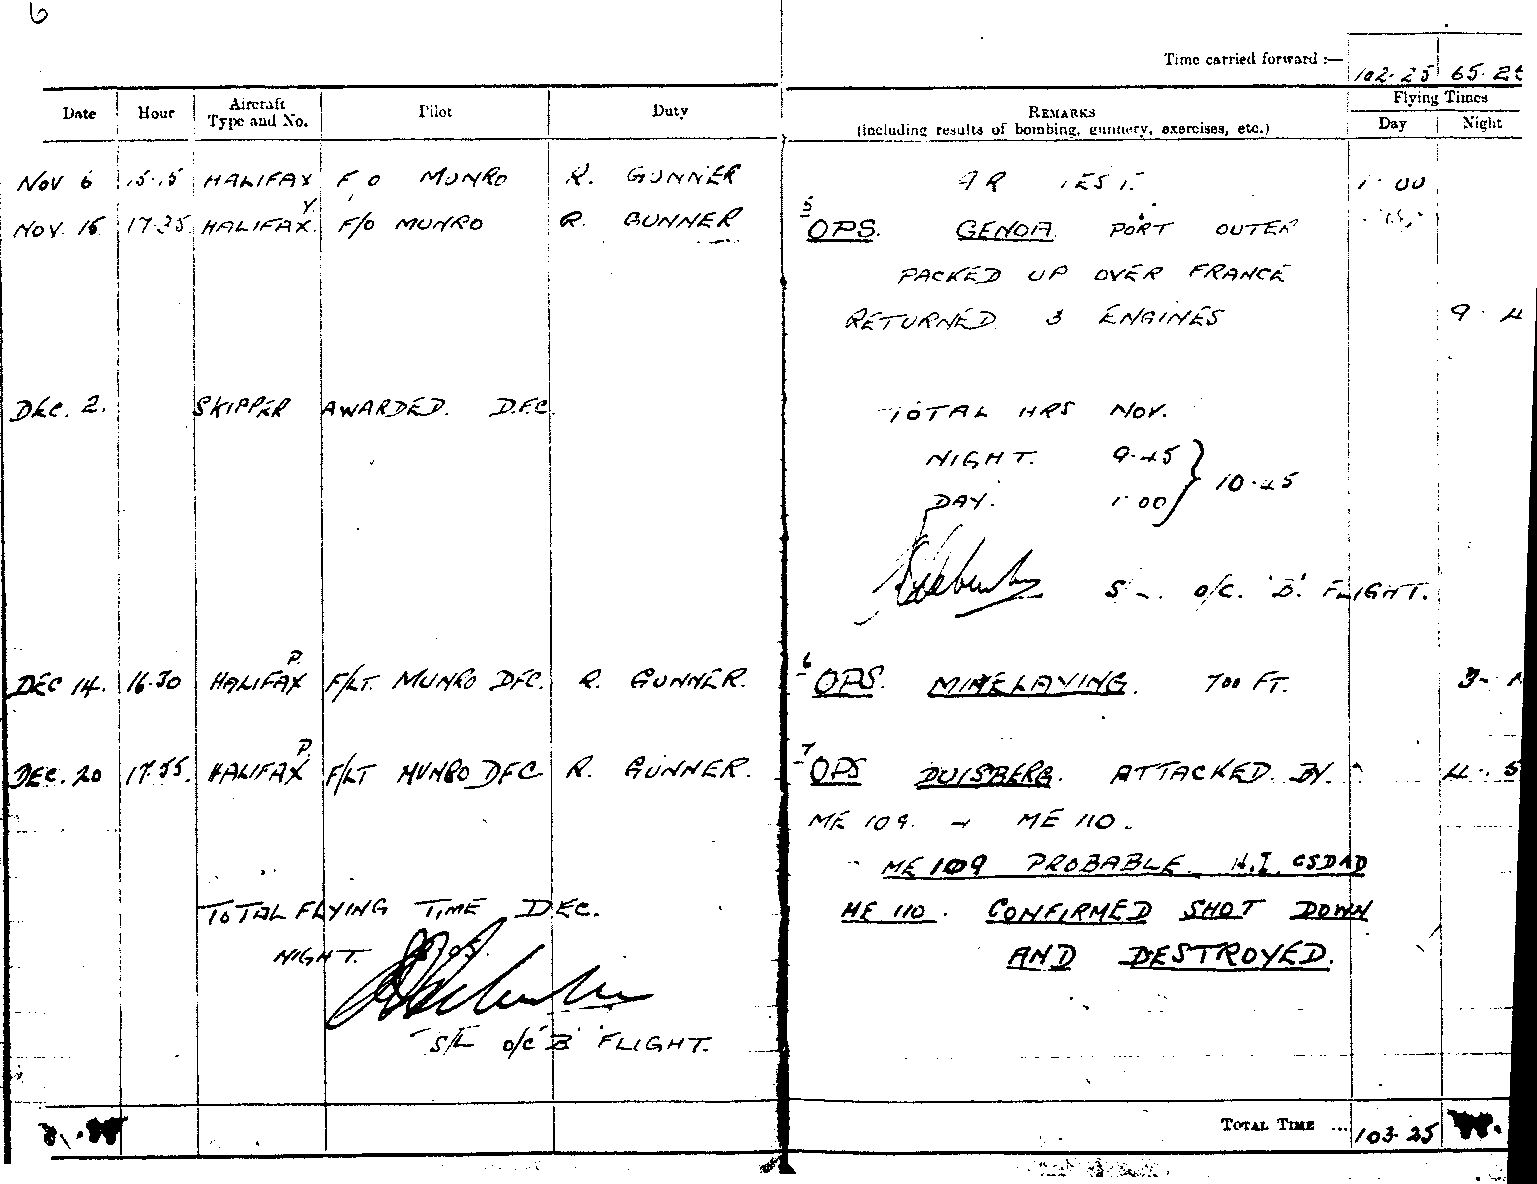 6
Time carried forward :— 102·25 65·25
Date Hour Aircraft Type and No. Pilot Duty REMARKS (including results of bombing, gunnery, exercises, etc.) Flying Times Day Night
NOV 6 15·15 HALIFAX F O MUNRO R. GUNNER TEST. 1·00
NOV. 15 17·35 HALIFAX. Y F/O MUNRO R. GUNNER 5 OPS. GENOA. PORT OUTER
PACKED UP OVER FRANCE
RETURNED 3 ENGINES 9· 4
DEC. 2. SKIPPER AWARDED. D.F.C. TOTAL HRS NOV.
NIGHT. 9·45
DAY. 1·00 } 10·45
O/C. 'B'. FLIGHT.
DEC 14. 16·30 HALIFAX P. F/LT. MUNRO DFC. R. GUNNER. 6 OPS. MINELAYING. 700 FT. 3-
DEC. 20 17·55. HALIFAX P. F/LT MUNRO DFC R. GUNNER. 7 OPS DUISBERG. ATTACKED BY.
4·5
ME 109. ME 110.
ME 109 PROBABLE
TOTAL FLYING TIME DEC. ME 110. CONFIRMED SHOT DOWN
NIGHT. AND DESTROYED.
S/L O/C 'B' FLIGHT.
TOTAL TIME ... 103·25